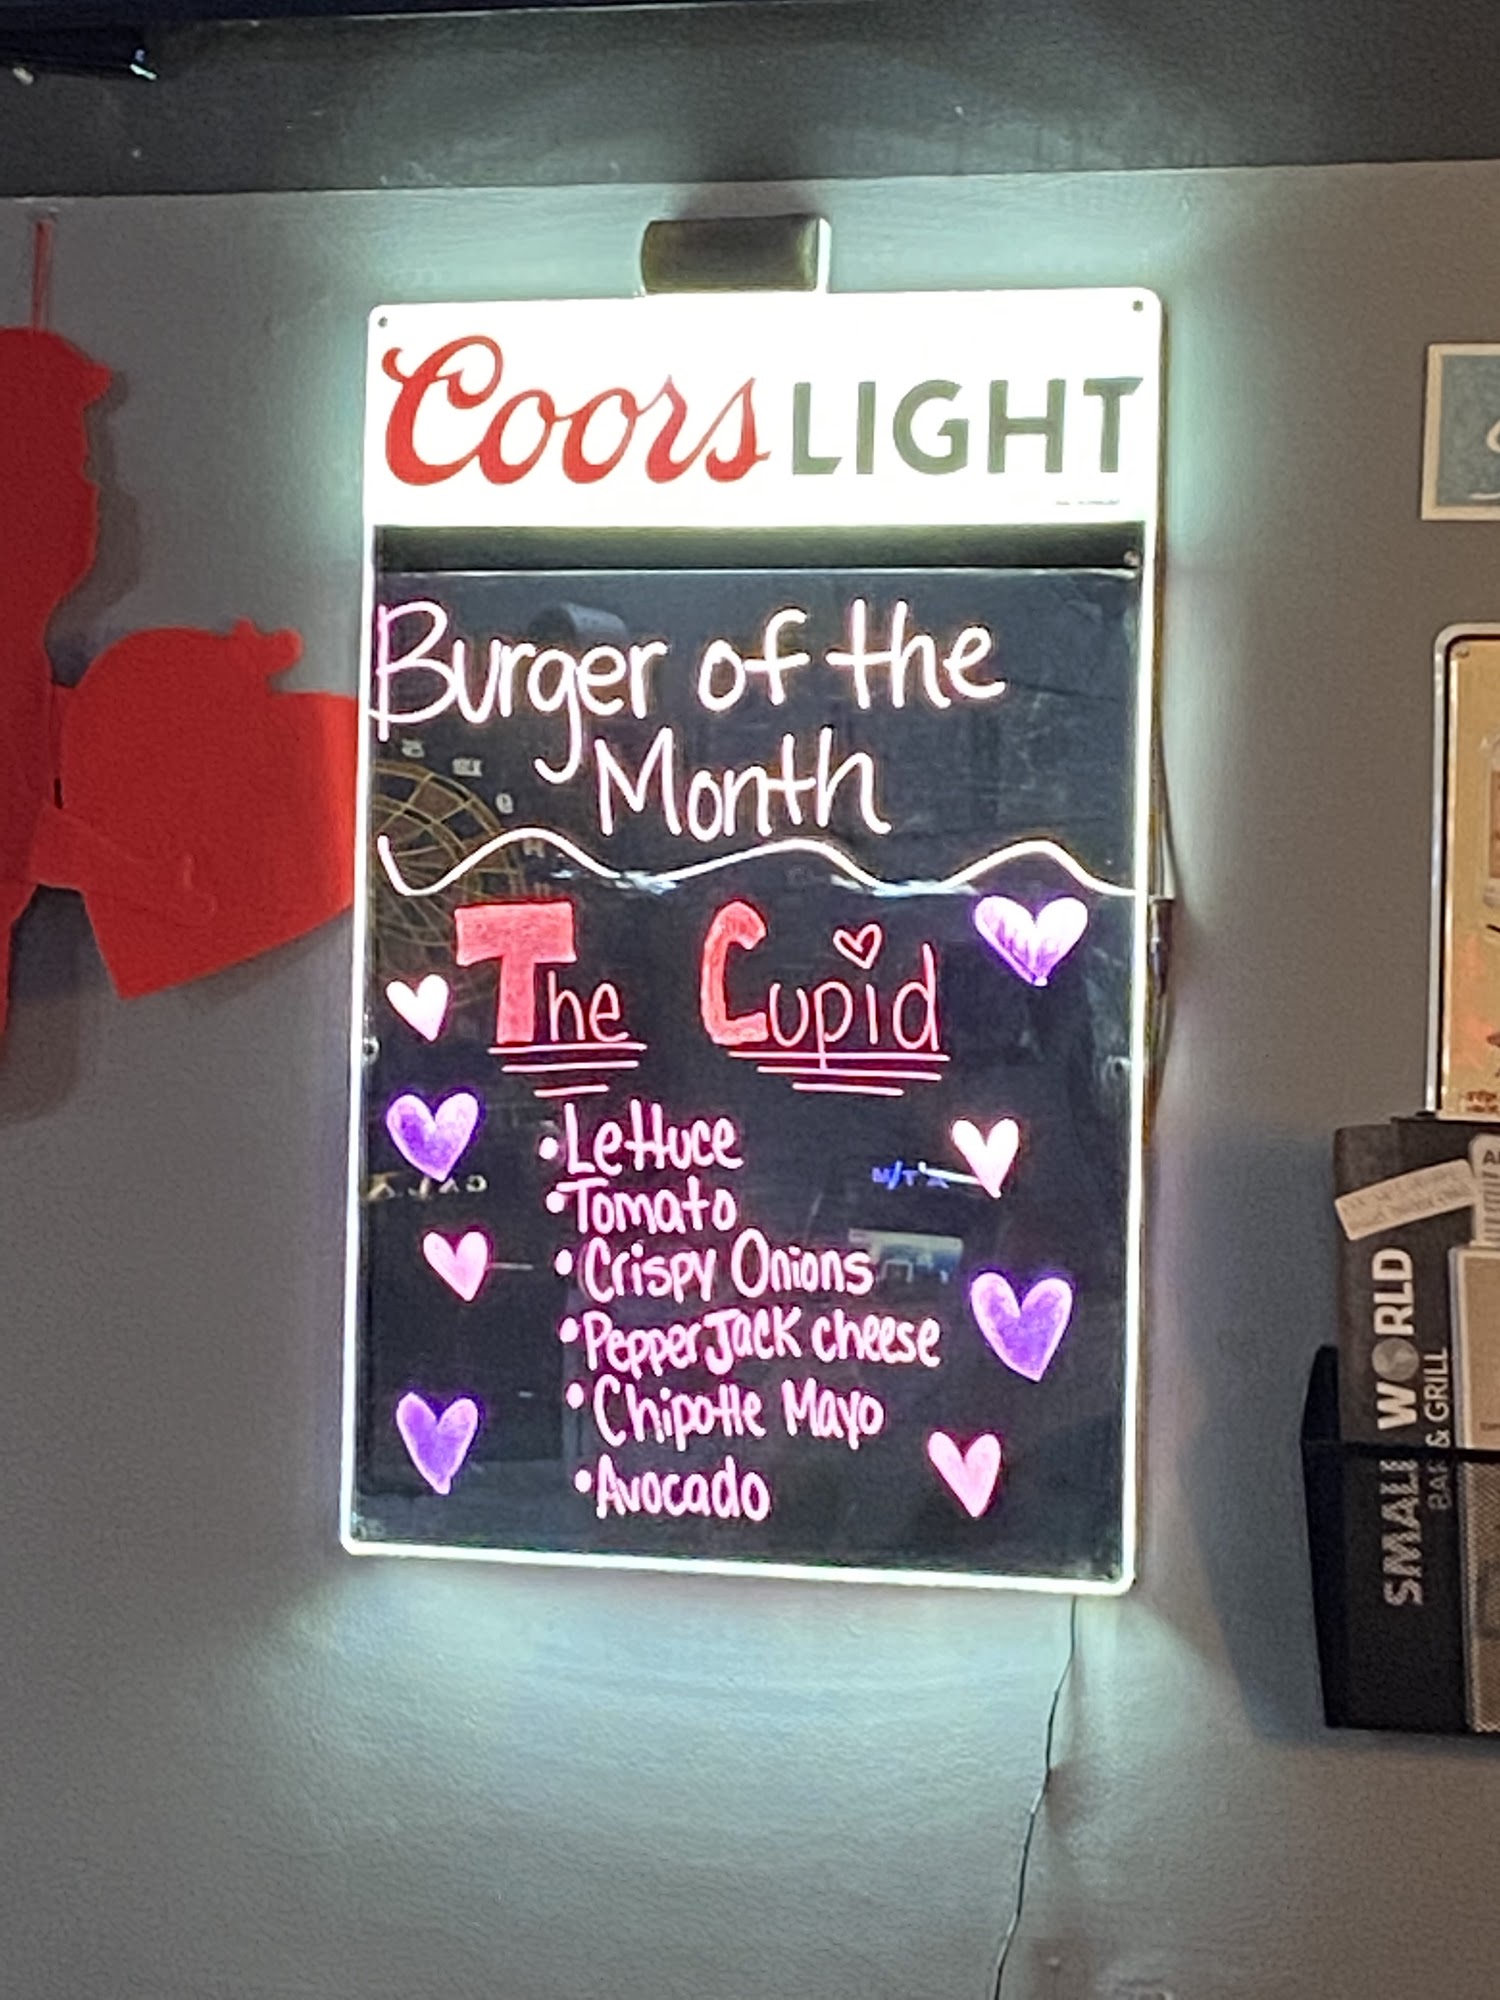 Coors LIGHT
Burger of the
Month
The Cupid
• Lettuce
• Tomato
• Crispy Onions
• Pepper Jack cheese
• Chipotle Mayo
• Avocado
SMALL WORLD
BAR & GRILL